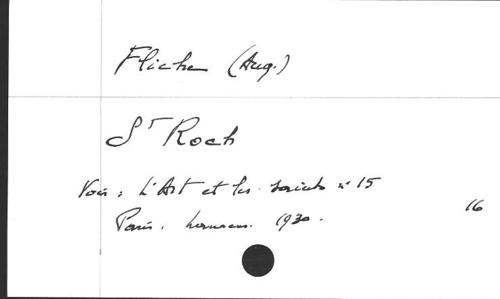 Fliche (Aug.)
St Roch
Voir : L'Art et les saints n° 15
Paris. Laurens. 1930.
16